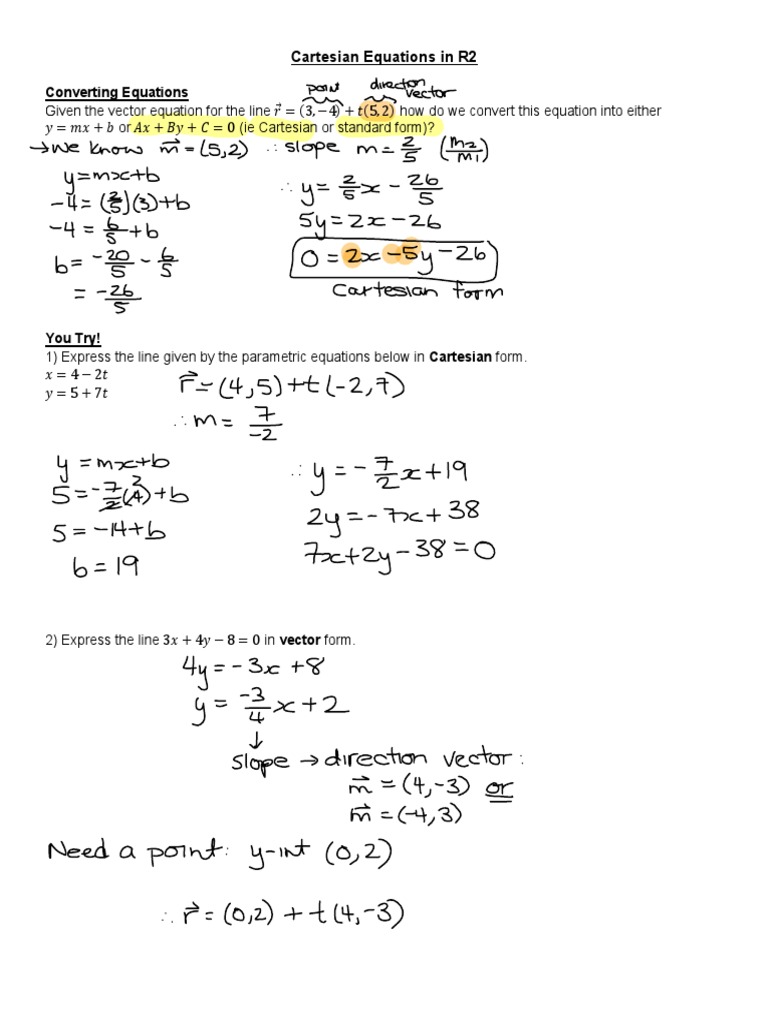 Cartesian Equations in R2
Converting Equations
point direction vector
Given the vector equation for the line r⃗ = (3, −4) + t(5, 2) how do we convert this equation into either
y = mx + b or Ax + By + C = 0 (ie Cartesian or standard form)?
→ we know m⃗ = (5,2) ∴ slope m = 2/5 (m2/m1)
y = mx+b
-4 = (2/5)(3)+b
-4 = 6/5 + b
b = -20/5 - 6/5
= -26/5
∴ y = 2/5 x - 26/5
5y = 2x - 26
0 = 2x - 5y - 26
Cartesian form
You Try!
1) Express the line given by the parametric equations below in Cartesian form.
x = 4 − 2t
y = 5 + 7t
r⃗ = (4,5) + t(-2,7)
∴ m = 7/-2
y = mx+b
5 = -7/2(4)+b
2
5 = -14+b
b = 19
∴ y = -7/2 x + 19
2y = -7x + 38
7x+2y-38 = 0
2) Express the line 3x + 4y − 8 = 0 in vector form.
4y = -3x + 8
y = -3/4 x + 2
↓
slope → direction vector:
m⃗ = (4,-3) or
m⃗ = (-4,3)
Need a point: y-int (0,2)
∴ r⃗ = (0,2) + t(4,-3)